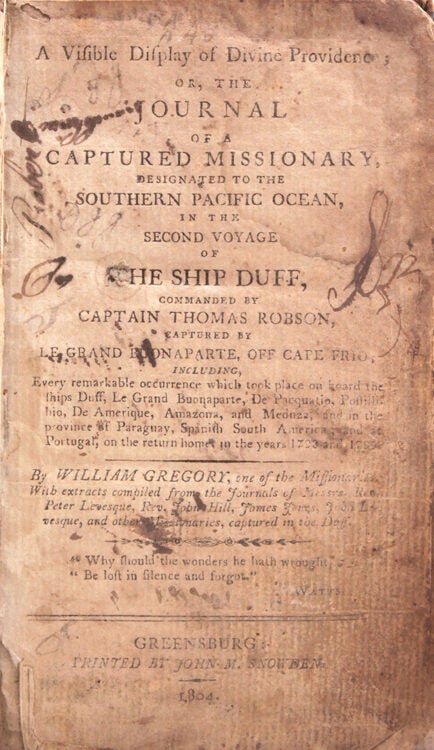 A Viſible Diſplay of Divine Providence;
OR, THE
JOURNAL
OF A
CAPTURED MISSIONARY,
DESIGNATED TO THE
SOUTHERN PACIFIC OCEAN,
IN THE
SECOND VOYAGE
OF
THE SHIP DUFF,
COMMANDED BY
CAPTAIN THOMAS ROBSON,
CAPTURED BY
LE GRAND BUONAPARTE, OFF CAPE FRIO,
INCLUDING,
Every remarkable occurrence which took place on board the
ſhips Duff, Le Grand Buonaparte, De
De Amerique, Amazona, and Meduza, and in the
province of Paraguay, Spaniſh South America, and
Portugal, on the return home, in the years
By WILLIAM GREGORY, one of the Miſſionaries.
With extracts compiled from the Journals of Meſſrs. Rev.
Peter Leveſque, Rev. John Hill, James Jones, John Le-
veſque, and other Miſſionaries, captured in the Duff.
" Why ſhould the wonders he hath wrought,
" Be loſt in ſilence and forgot."
WATTS.
GREENSBURG:
PRINTED BY JOHN M. SNOWDEN.
1804.